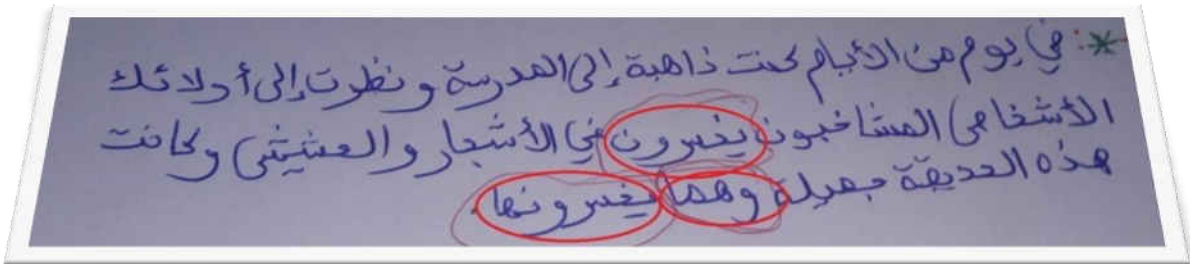 في يوم من الأيام كنت ذاهبة إلى المدرسة و نظرت إلى أولائك
الأشخاص المشاغبون يخسرون في الأشجار و الحشيش وكانت
هذه الحديقة جميلة وهما يخسرونها.